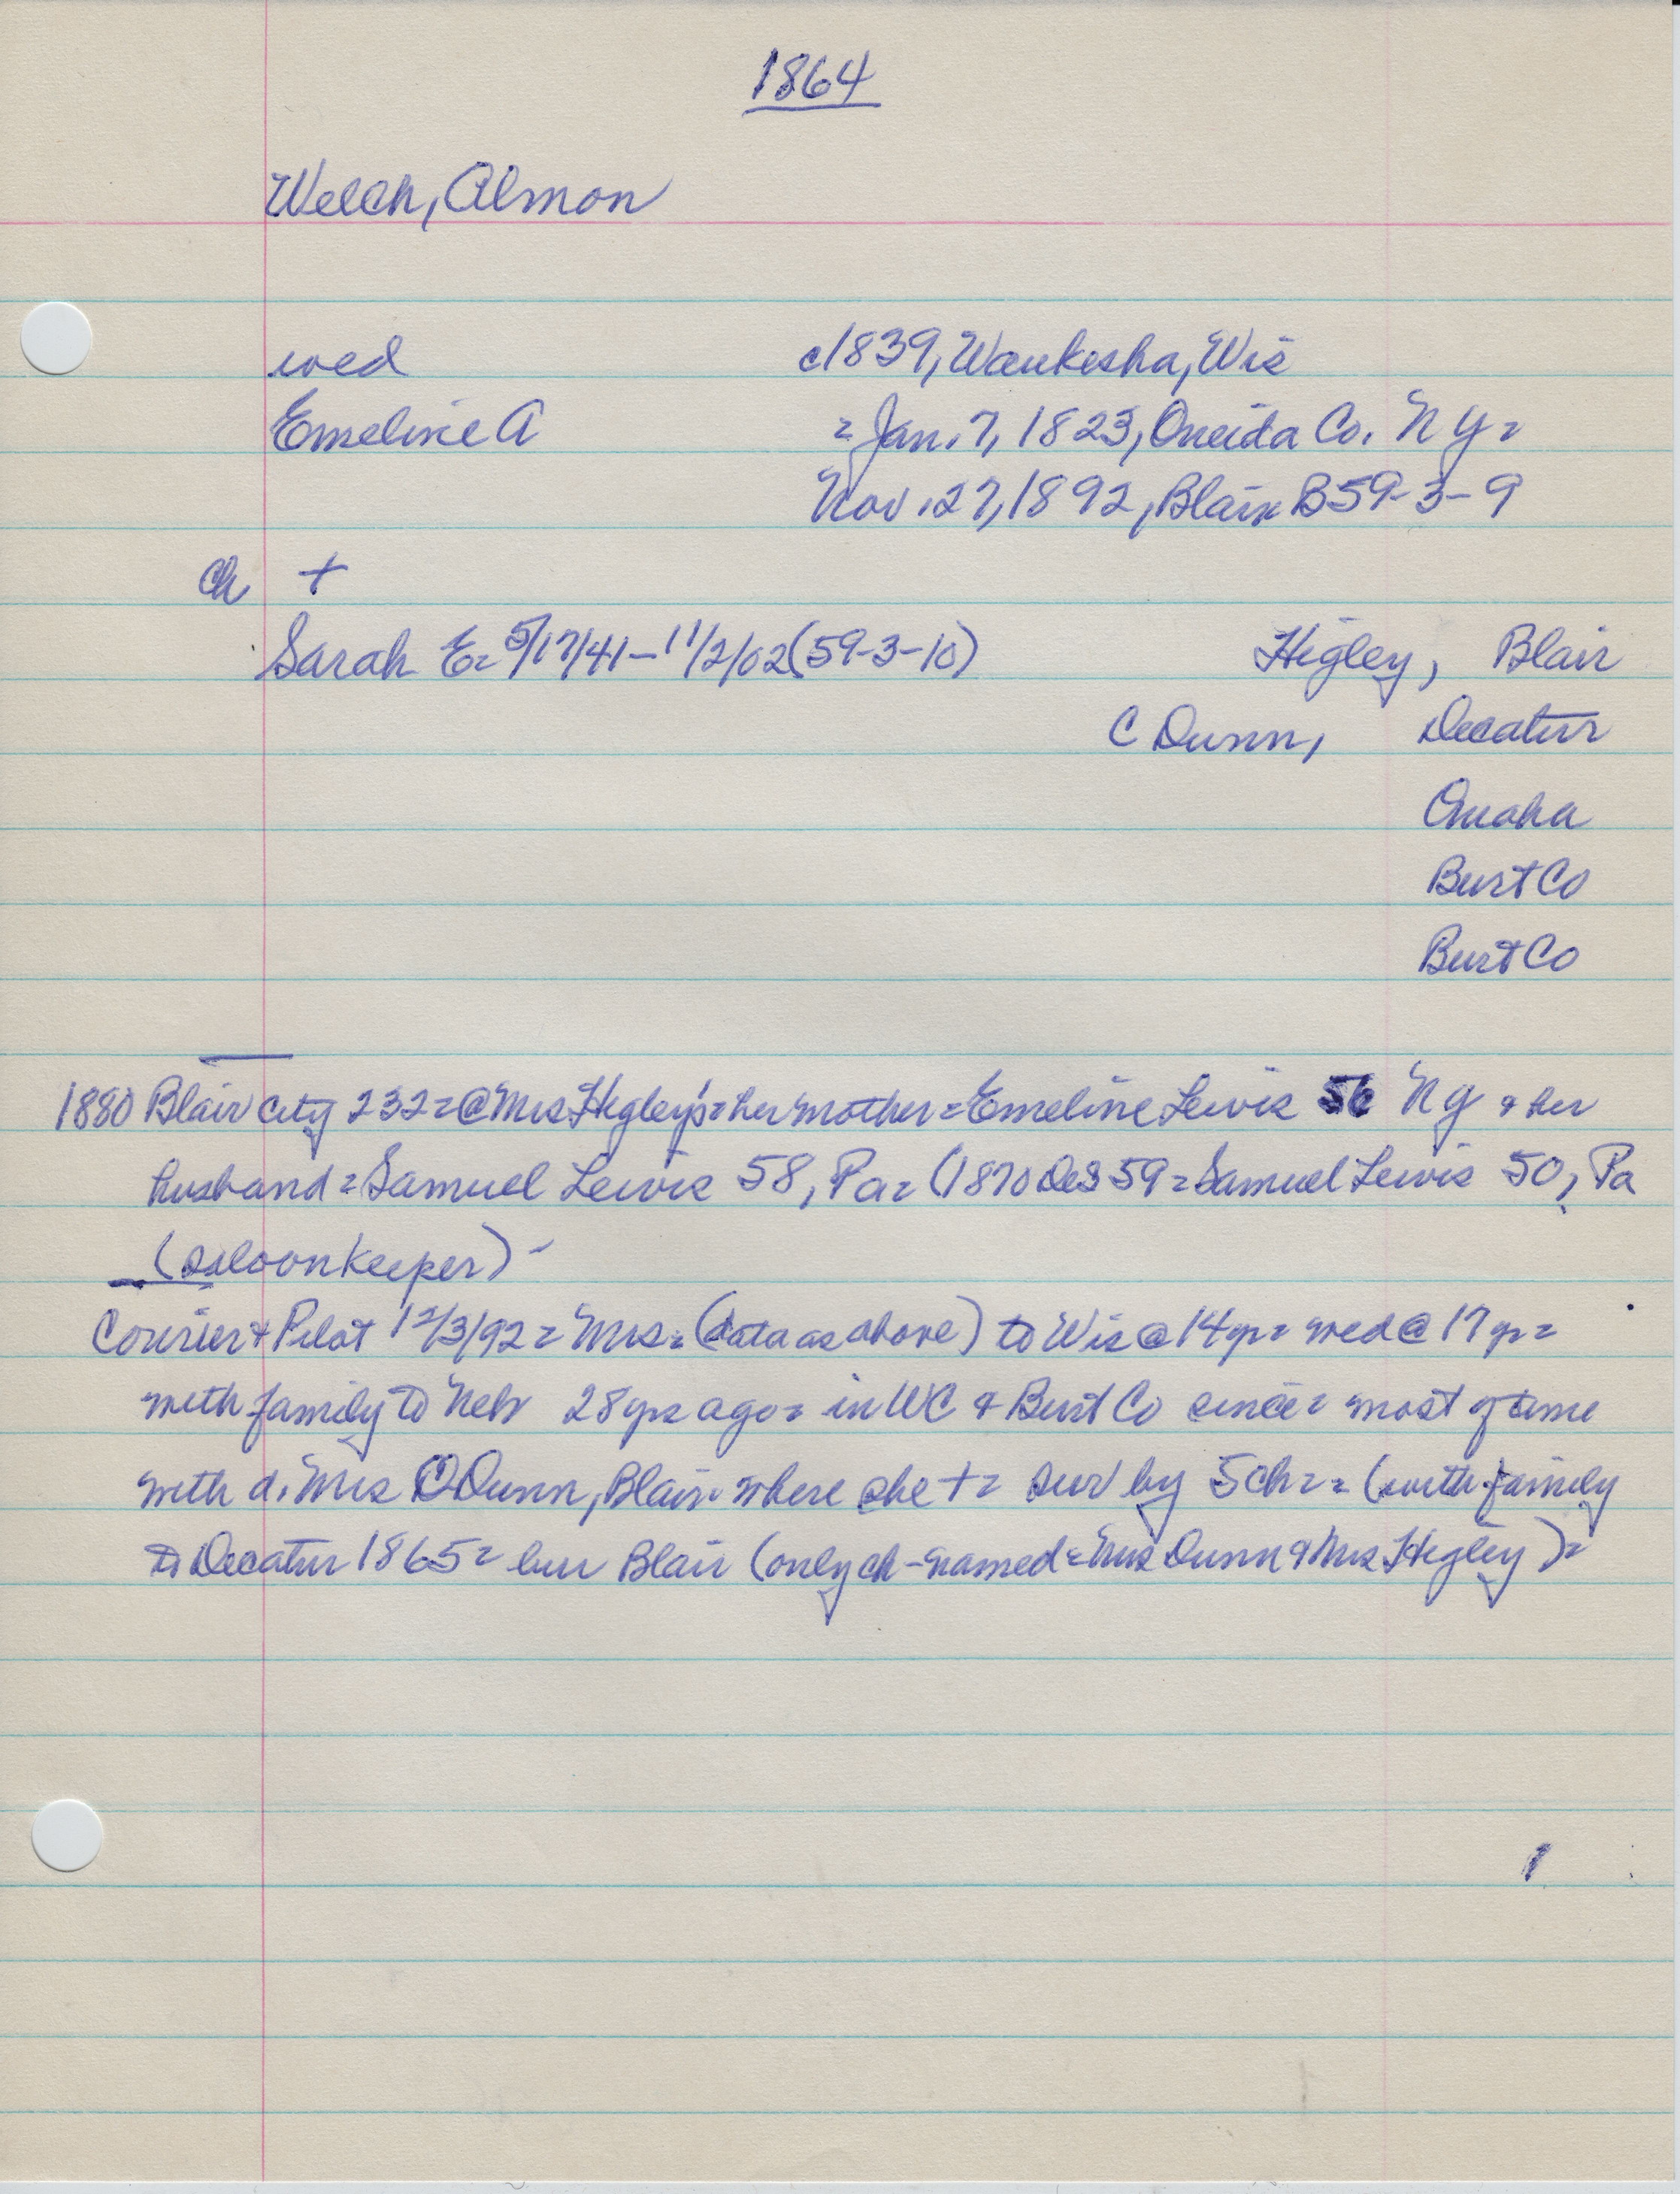 1864
Welch, Almon
wed c1839, Waukesha, Wis
Emeline A = Jan. 7, 1823, Oneida Co. N Y =
Nov. 27, 1892, Blair B59-3-9
ch +
Sarah E = 5/17/41 - 11/2/02 (59-3-10) Higley, Blair
C Dunn, Decatur
Omaha
Burt Co
Burt Co
1880 Blair city 232 = @ Mrs Higley's = her mother = Emeline Lewis 56 N Y & her
husband = Samuel Lewis 58, Pa = (1870 DeS 59 = Samuel Lewis 50, Pa
(saloonkeeper) -
Courier + Pilot 12/3/92 = Mrs = (data as above) to Wis @ 14 yr = wed @ 17 yr =
with family to Neb 28 yrs ago = in WC & Burt Co since = most of time
with d. Mrs C Dunn, Blair where she + = sur by 5 ch = = (with family
to Decatur 1865 = bur Blair (only ch - named = Mrs Dunn & Mrs Higley) =
1